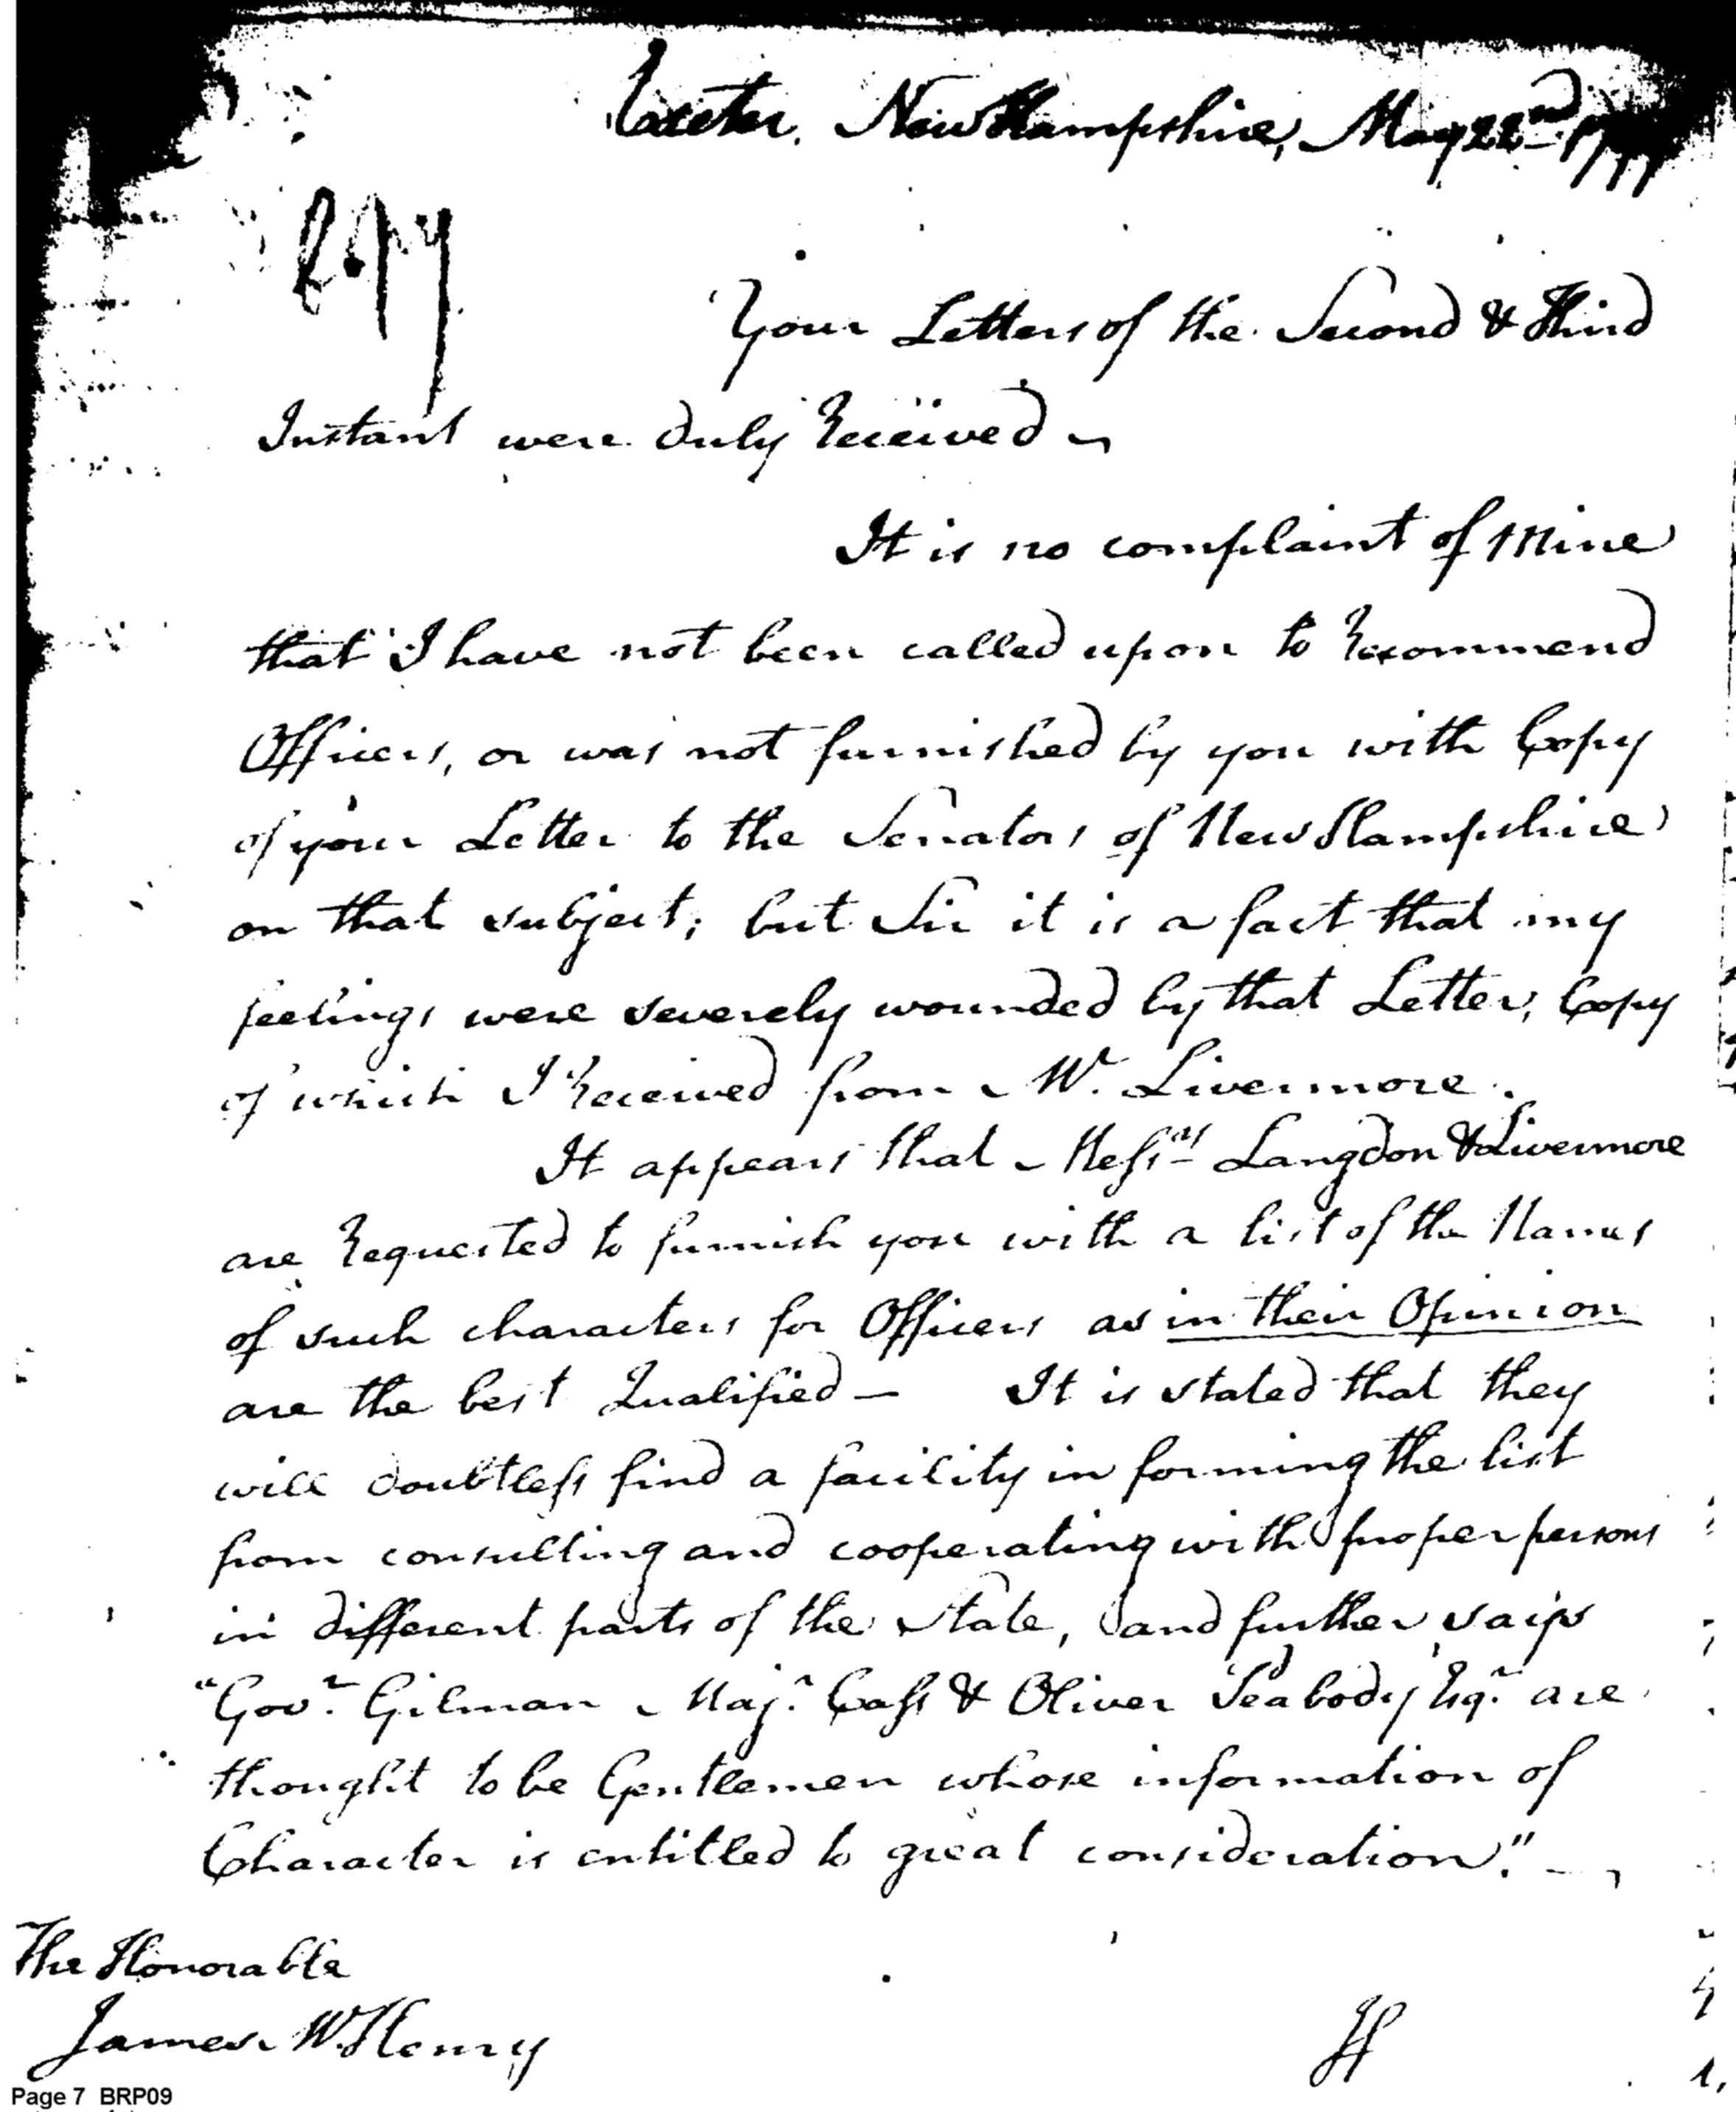 Exeter, New Hampshire, May 22nd 1799
Copy
Your Letters of the Second & Third
Instant were duly Received ~
It is no complaint of Mine
that I have not been called upon to Recommend
Officers, or was not furnished by you with Copy
of your Letter to the Senators of New Hampshire
on that subject; but Sir it is a fact that my
feelings were severely wounded by that Letter, Copy
of which I Received from Mr. Livermore.
It appears that Messrs Langdon & Livermore
are Requested to furnish you with a list of the Names
of such characters for Officers as in their Opinion
are the best Qualified — It is stated that they
will doubtless find a facility in forming the list
from consulting and cooperating with proper persons
in different parts of the State, and further says
"Govr. Gilman Majr. Cass & Oliver Peabody Esqr. are
thought to be Gentlemen whose information of
Character is entitled to great consideration." —
The Honorable
James McHenry
If
Page 7 BRP09